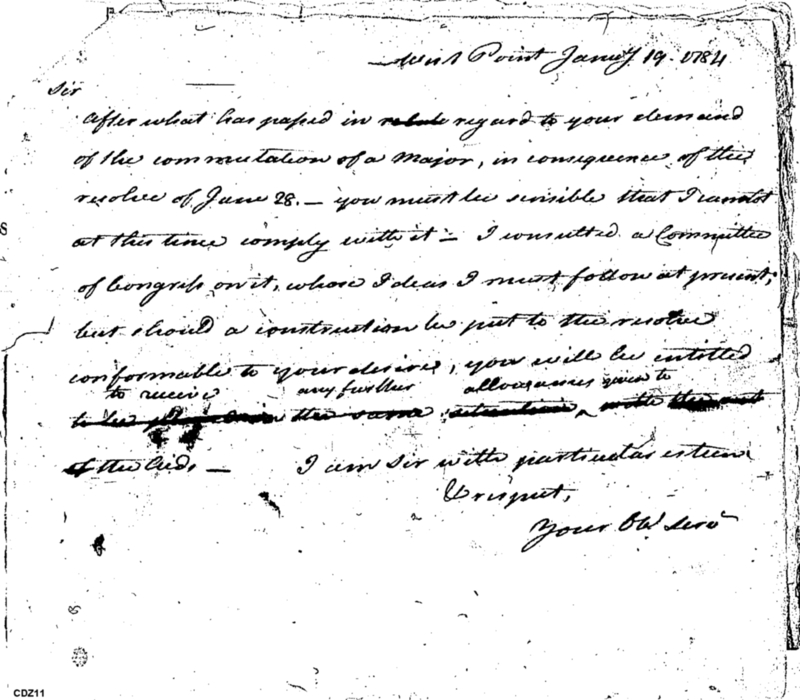 West Point Jany 19. 1784
Sir
After what has passed in regard to your demand
of the commutation of a Major, in consequence of the
resolve of June 28. — you must be sensible that I cannot
at this time comply with it — I consulted a Committee
of Congress on it, whose Ideas I must follow at present;
but should a construction be put to the resolve
conformable to your desires, you will be entitled
to receive any further allowances given to
to be the same situation, with the rest
of the Aids — I am Sir with particular esteem
& respect,
Your Obt Servt
CDZ11